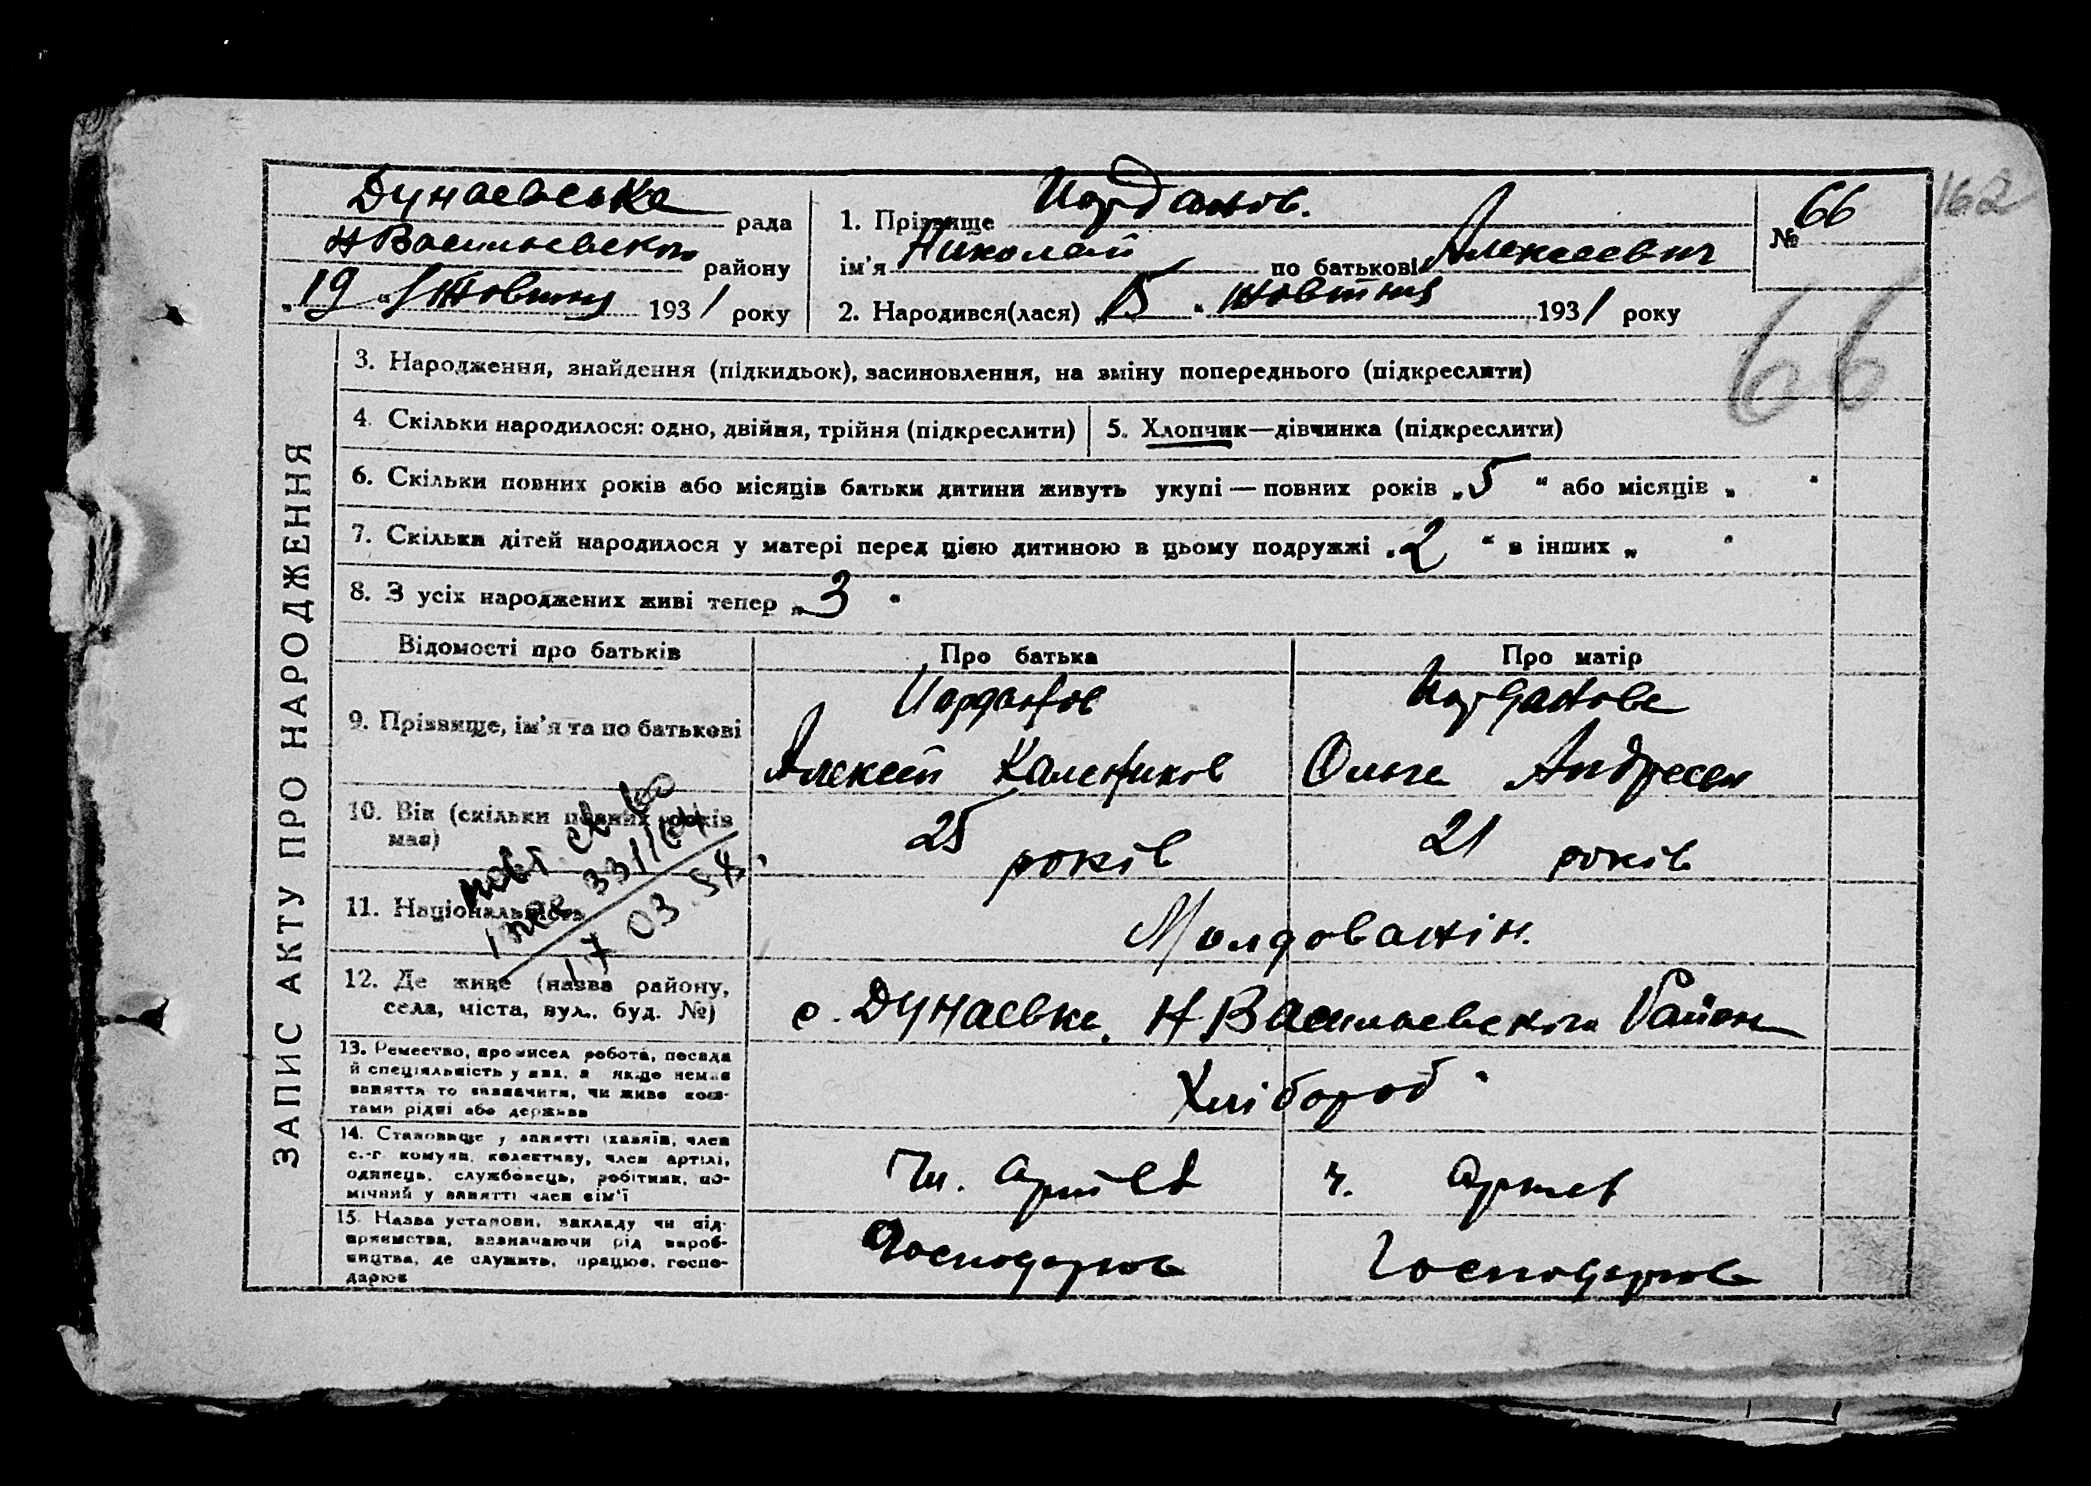 Дунаевська рада
Н Васильевского району
„19“ Жовтня 1931 року
1. Прізвище Иорданов.
ім'я Николай по батькові Алексеевич
2. Народився(лася) „15“ Жовтня 1931 року
№ 66
162
66
ЗАПИС АКТУ ПРО НАРОДЖЕННЯ
3. Народження, знайдення (підкидьок), засиновлення, на зміну попереднього (підкреслити)
4. Скільки народилося: одно, двійня, трійня (підкреслити)
5. Хлопчик—дівчинка (підкреслити)
6. Скільки повних років або місяців батьки дитини живуть укупі — повних років „5“ або місяців „ “
7. Скільки дітей народилося у матері перед цією дитиною в цьому подружжі „2“ в інших „ “
8. З усіх народжених живі тепер „3“
Відомості про батьків
Про батька
Про матір
9. Прізвище, ім'я та по батькові
Иорданов
Алексей Калеников
Иорданова
Ольга Андреев
10. Вік (скільки повних років
має)
25 років
21 років
11. Національність
Молдованін.
12. Де живе (назва району,
села, міста, вул., буд. №)
с. Дунаевка, Н Васильевского Район
13. Ремество, промисел робота, посада
й спеціяльність у них, а якщо немає
заняття то зазначити, чи живе кош-
тами рідні або держави
Хлібороб
14. Становище у занятті (хазяїн, член
с.-г комуни, колективу, член артілі,
одинець, службовець, робітник, по-
мічний у занятті член сім'ї
Чл. Артел
ч. Артел
15. Назва установи, закладу чи під-
приємства, зазначаючи рід вироб-
ництва, де служить, працює, госпо-
дарює
Господарков
Господаркова
331/64
17 03 58.